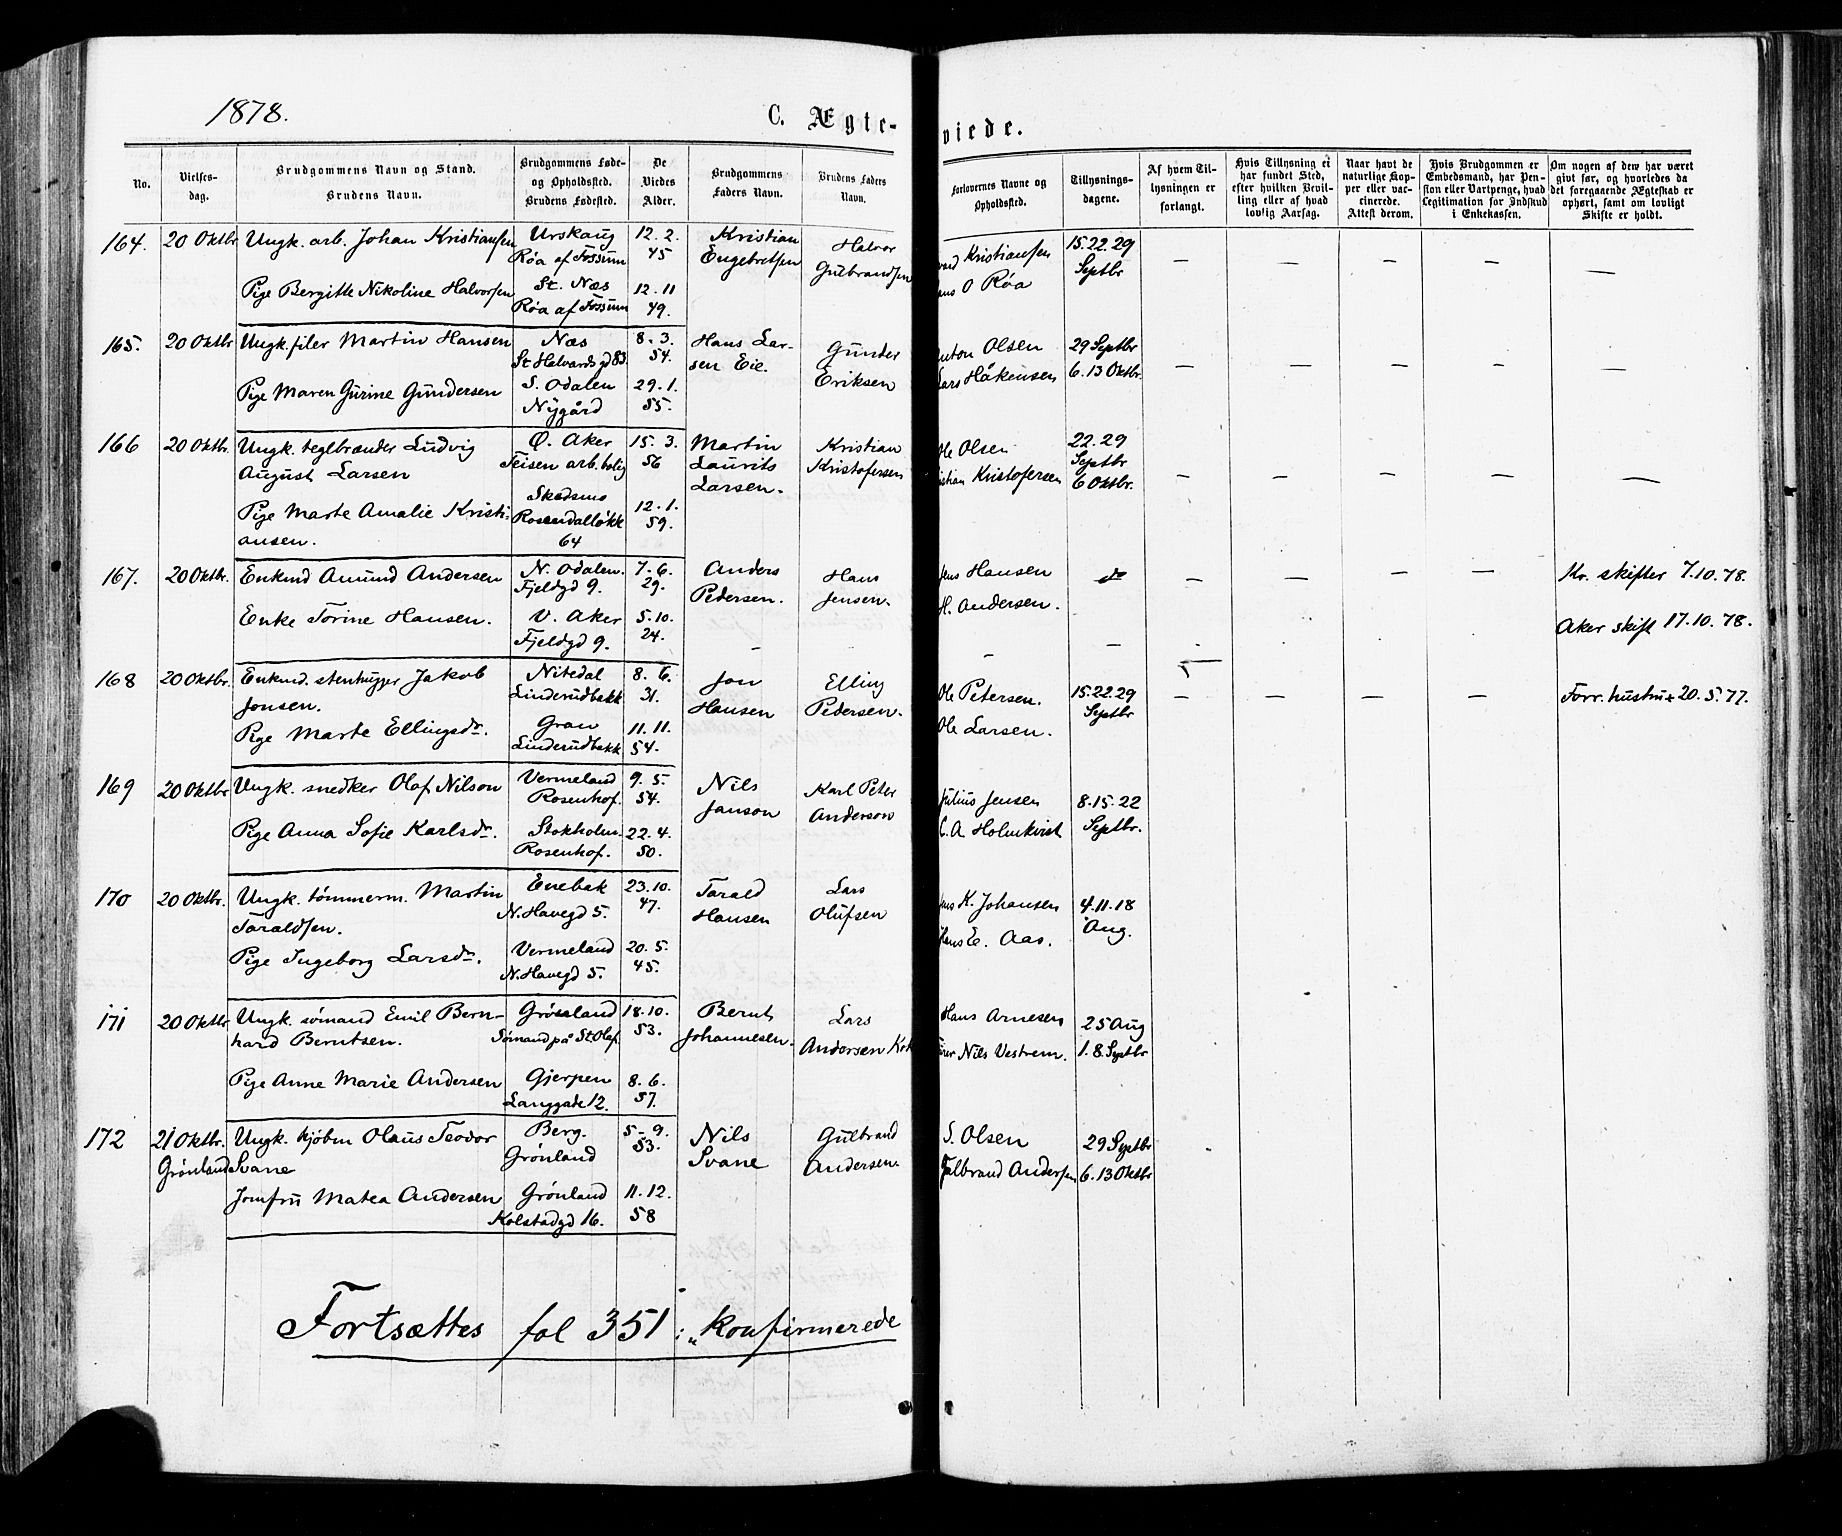 1878.
C. Ægte-
viede.
No.
Vielses-
dag.
Brudgommens Navn og Stand.
Brudens Navn.
Brudgommens Føde-
og Opholdssted.
Brudens Fødested.
De
Viedes
Alder.
Brudgommens
Faders Navn.
Brudens Faders
Navn.
Forlovernes Navne og
Opholdssted.
Tillysnings-
dagene.
Af hvem Til-
lysningen er
forlangt.
Hvis Tillysning ei
har fundet Sted,
efter hvilken Bevil-
ling eller af hvad
lovlig Aarsag.
Naar havt de
naturlige Kop-
per eller vac-
cinerede.
Attest derom.
Hvis Brudgommen er
Embedsmand, har Pen-
sion eller Vartpenge, hvad
Legitimation for Indskud
i Enkekassen.
Om nogen af dem har været
givt før, og hvorledes da
det foregaaende Ægteskab er
ophørt, samt om lovligt
Skifte er holdt.
164. 20 Oktbr Ungk. arb. Johan Kristiansen Urskaug 12. 2. Kristian Halvor Kristiansen 15. 22. 29
Røa af Fossum 45 Engebretsen Gulbrandsen O Røa Septbr — — — — —
Pige Bergitte Nikoline Halvorsen St. Næs 12. 11
Røa af Fossum 49.
165. 20 Oktbr Ungk. filer Martin Hansen Næs 8. 3. Hans Lar- Gunder Olsen 29 Septbr
St Halvards gd 83 54. sen Eie. Eriksen Håkensen 6. 13 Oktbr. — — — — —
Pige Maren Gurine Gundersen S. Odalen 29. 1.
Nygård 55.
166 20 Oktbr. Ungk. teglbrænder Ludvig Ø. Aker 15. 3. Martin Kristian Ole Olsen 22. 29
August Larsen Teisen arb. bolig 56 Laurits Kristofersen Kristofersen Septbr
Larsen. 6 Oktbr. — — — — —
Pige Marte Amalie Kristi- Skedsmo 12. 1.
ansen. Rosendalløkk 59.
64
167. 20 Oktbr. Enkmd Amund Andersen N. Odalen. 7. 6. Anders Hans Hansen do — — — — Kr. skifter 7.10.78.
Fjeldgd 9. 29. Pedersen. Jensen. H. Andersen.
Enke Torine Hansen. V. Aker 5. 10. Aker skift 17.10.78.
Fjeldgd 9. 24. — — — —
168 20 Oktbr. Enkmd. stenhugger Jakob Nitedal 8. 6. Jon Elling Ole Petersen. 15. 22. 29 — — — — Forr. hustru + 20. 5. 77.
Jonsen. Linderudbakk 31. Hansen Pedersen. Ole Larsen. Septbr
Pige Marte Ellingsdr. Gran 11. 11.
Linderudbakk 54.
169 20 Oktbr Ungk. snedker Olaf Nilson Vermeland 9. 5. Nils Karl Peter Julius Jensen 8. 15. 22
Rosenhof. 54. Janson Anderson C. A Holmkvist Septbr.
Pige Anna Sofie Karlsdr. Stokholm. 22. 4.
Rosenhof. 50.
170 20 Oktbr. Ungk. tømmerm. Martin Enebak 23. 10. Tarald Lars K. Johansen 4. 11. 18
Taraldsen. N. Havegd 5. 47. Hansen Olufsen Hans E. Aas. Aug.
Pige Ingeborg Larsdr. Vermeland 20. 5.
N. Havegd 5. 45.
171 20 Oktbr Ungk. sømand Emil Bern- Grønland 18. 10. Bernt Lars Hans Arnesen 25 Aug
hard Berntsen. Sømand på St. Olaf. 53. Johannesen. Andersen Nils Vestrem. 1. 8. Septbr
Pige Anne Marie Andersen Gjerpen 8. 6.
Langgade 12. 57.
172 21 Oktbr. Ungk. kjøbm Olaus Teodor Berg. 5-9. Nils Gulbrand S. Olsen 29 Septbr
Grønland Svane Grønland 53. Svane Andersen. Andersen 6. 13 Oktbr
Jomfru Matea Andersen Grønland 11. 12.
Kolstadgd 16. 58
Fortsættes fol 351 : „konfirmerede